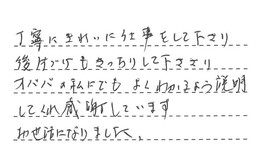 丁寧にきれいに仕事をして下さり
後片づけもきっちりして下さり
オバハの私にでもよくわかるよう説明
してくれ感謝しています
お世話になりました。